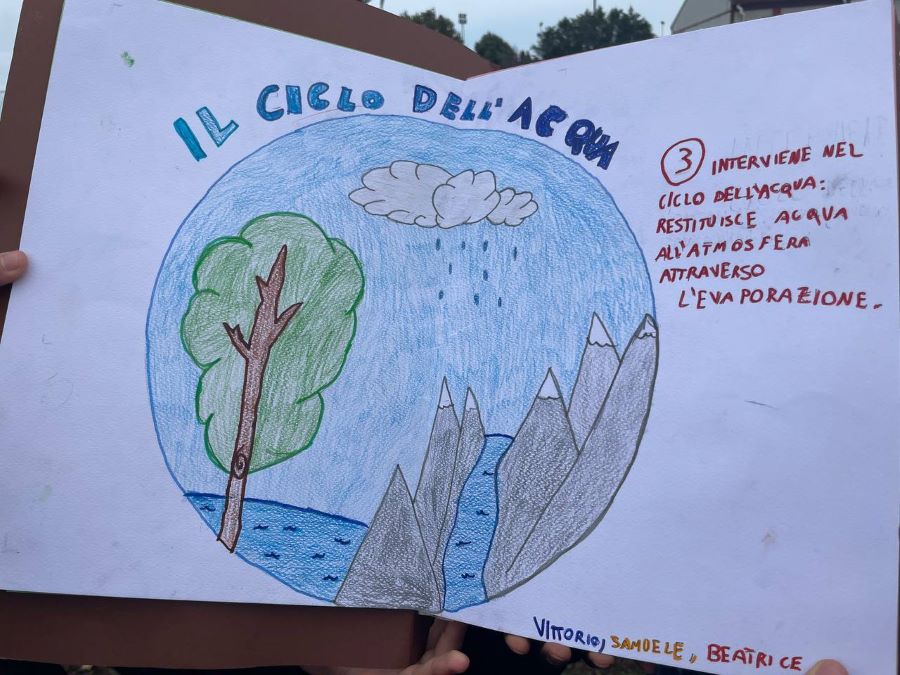 IL CICLO DELL'ACQUA
3 INTERVIENE NEL
CICLO DELL'ACQUA:
RESTITUISCE ACQUA
ALL'ATMOSFERA
ATTRAVERSO
L'EVAPORAZIONE.
VITTORIO, SAMUELE, BEATRICE